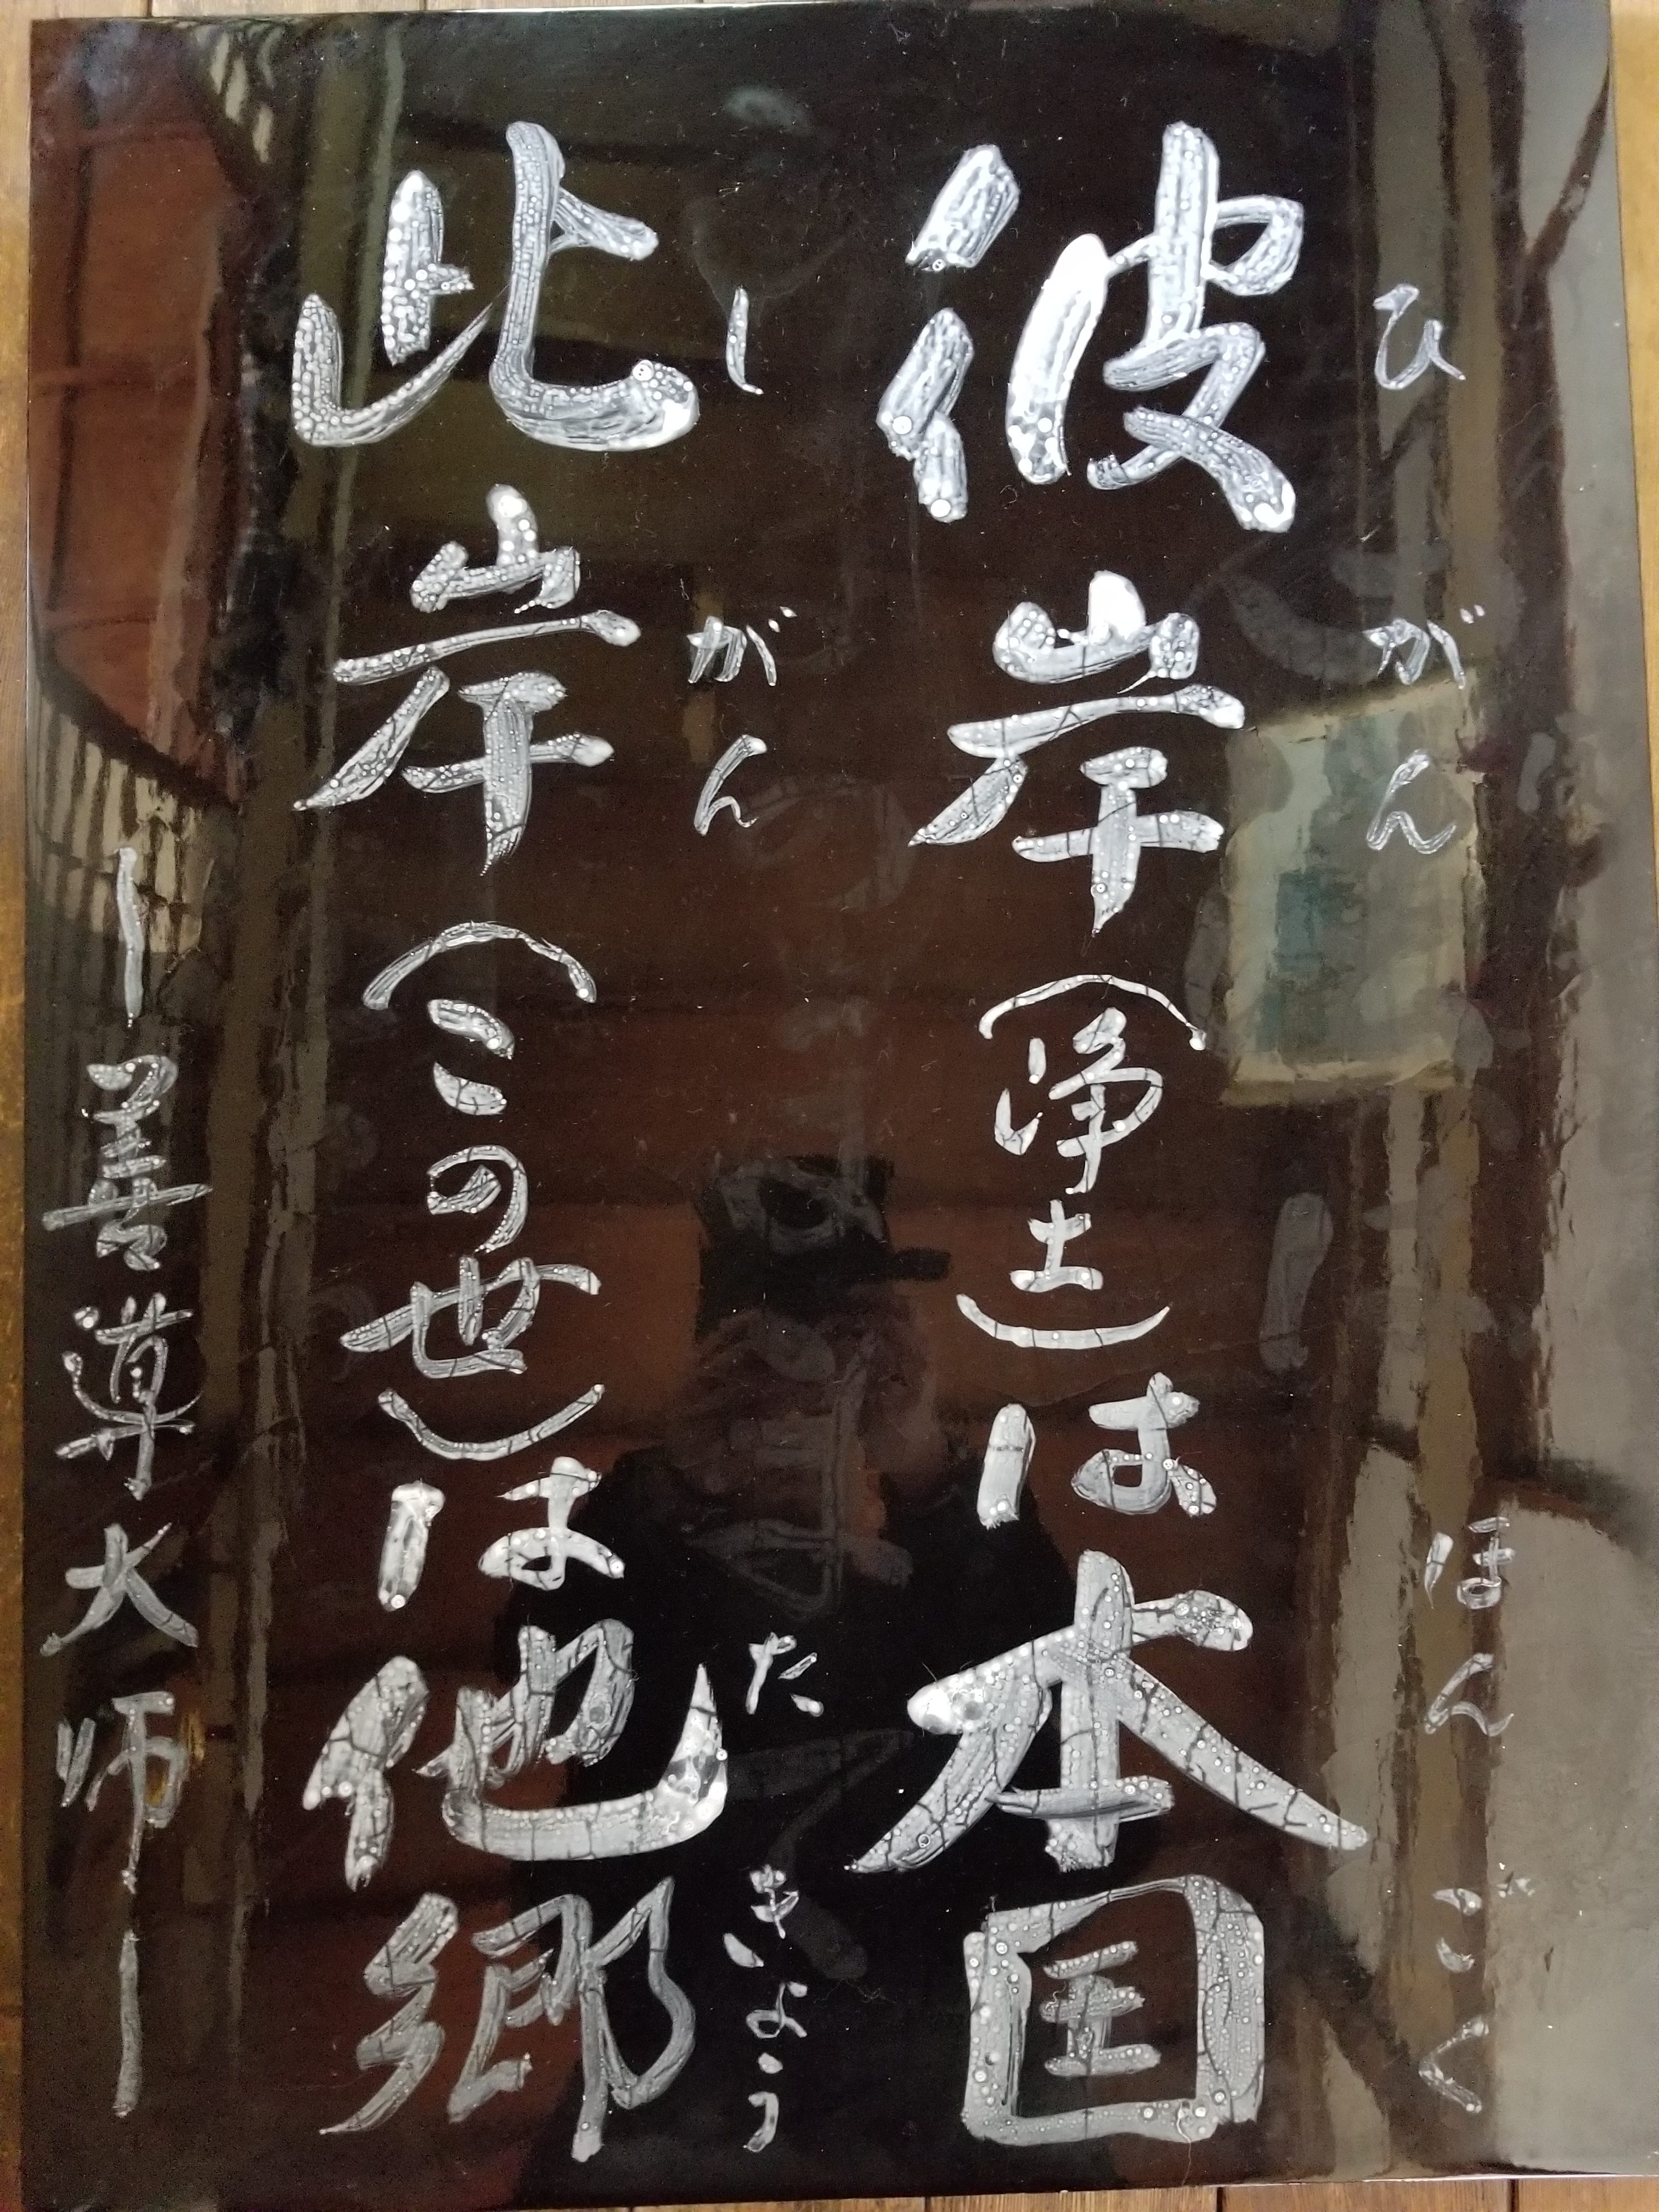 ひがん ほんごく
彼岸（浄土）は本国
しがん たきょう
此岸（この世）は他郷
ー善導大師ー